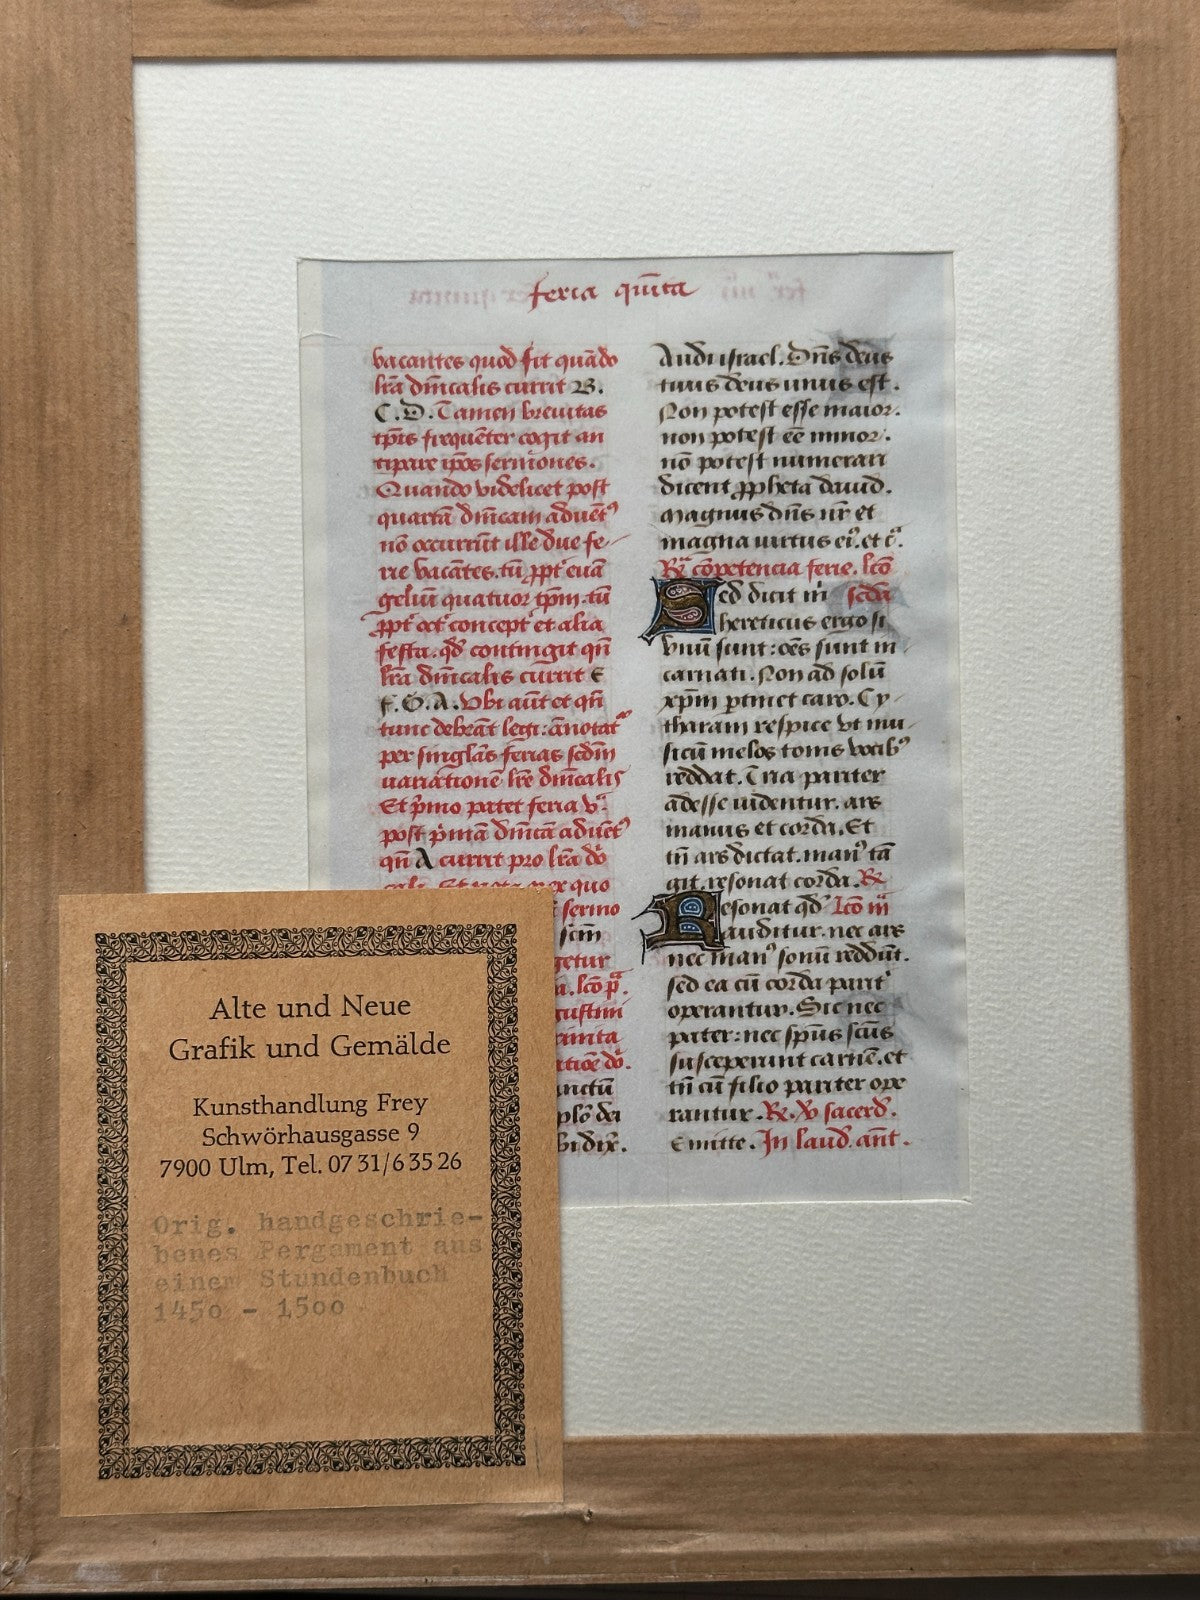 feria quīta
vacantes quod fit quādo
lrā dn̄icalis currit B.
C.D. Tamen breuitas
tp̄is frequēter cogit an
tipare ip̄os sermones.
Quando videlicet post
quartā dn̄icam aduētꝰ
nō occurrūt ille due fe-
rie vacātes. tū ꝓpt' euā
geliū quatuor tp̄m. tū
ꝓpt' oct' concept' et alia
festa. qd' contingit qn̄
lrā dn̄icalis currit E
F.G.A. Vbi aūt et qn̄
tunc debeāt legi: ānotat'
per singlās ferias scdm̄
uariationē lr̄e dn̄icalis
Et p̄mo patet feria v.
post p̄mā dn̄icā aduētꝰ
qn̄ A currit pro lrā do
quo
sermo
scm̄
getur
a. lcō p̄.
gustini
rinta
atiōe do.
anctū
plō dei
audi israel. Dn̄s deus
tuus deus unus est.
Non potest esse maior.
non potest eē minor.
nō potest numerari
dicent ꝓpheta dauid.
Magnus dn̄s nr̄ et
magna uirtus eiꝰ. et c̄.
R̄ cōpetencia ferie. lcō
Sed dicit m̄ scda
hereticus ergo si
vnū sunt: oēs sunt in
carnati. Non ad solū
xp̄m p̄tinet caro. Cy-
tharam respice vt mu-
sicū melos tonis vocibꝰ
reddat. Tria pariter
adesse uidentur. ars
manus et corda. Et
tn̄ ars dictat. manꝰ tā
git. resonat corda. R̄
Resonat qd' Lcō iii
auditur. nec ars
nec manꝰ sonū reddūt.
sed ea cū corda parit'
operantur. Sic nec
pater: nec sp̄us scūs
susceperunt carnē. et
tn̄ cū filio pariter ope
rantur. R̄. V̄ sacerd.
Emitte. In laud. ant̄.
Alte und Neue
Grafik und Gemälde
Kunsthandlung Frey
Schwörhausgasse 9
7900 Ulm, Tel. 07 31/6 35 26
Orig. handgeschrie-
benes Pergament aus
einem Stundenbuch
1450 - 1500